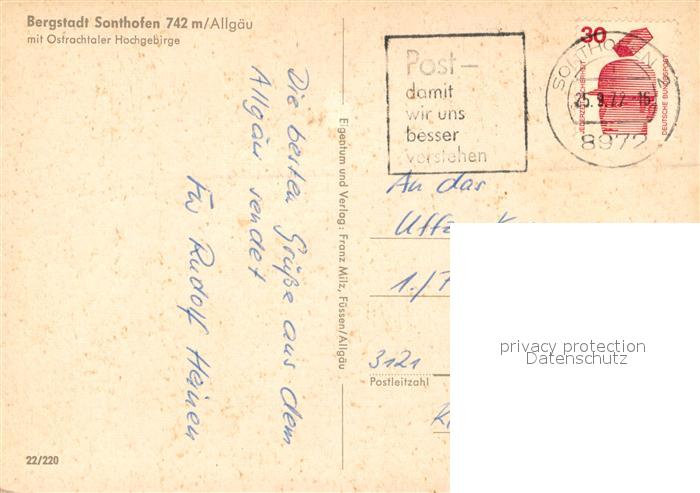 Bergstadt Sonthofen 742 m/Allgäu
mit Ostrachtaler Hochgebirge
Die besten Grüße aus dem
Allgäu sendet
Rudolf Heinen
22/220
Eigentum und Verlag: Franz Milz, Füssen/Allgäu
Post –
damit
wir uns
besser
verstehen
30
JEDERZEIT SICHERHEIT
DEUTSCHE BUNDESPOST
SONTHOFEN 2
25.9.72-16
8972
An das
Uffz.
1./
3121
Postleitzahl
privacy protection
Datenschutz